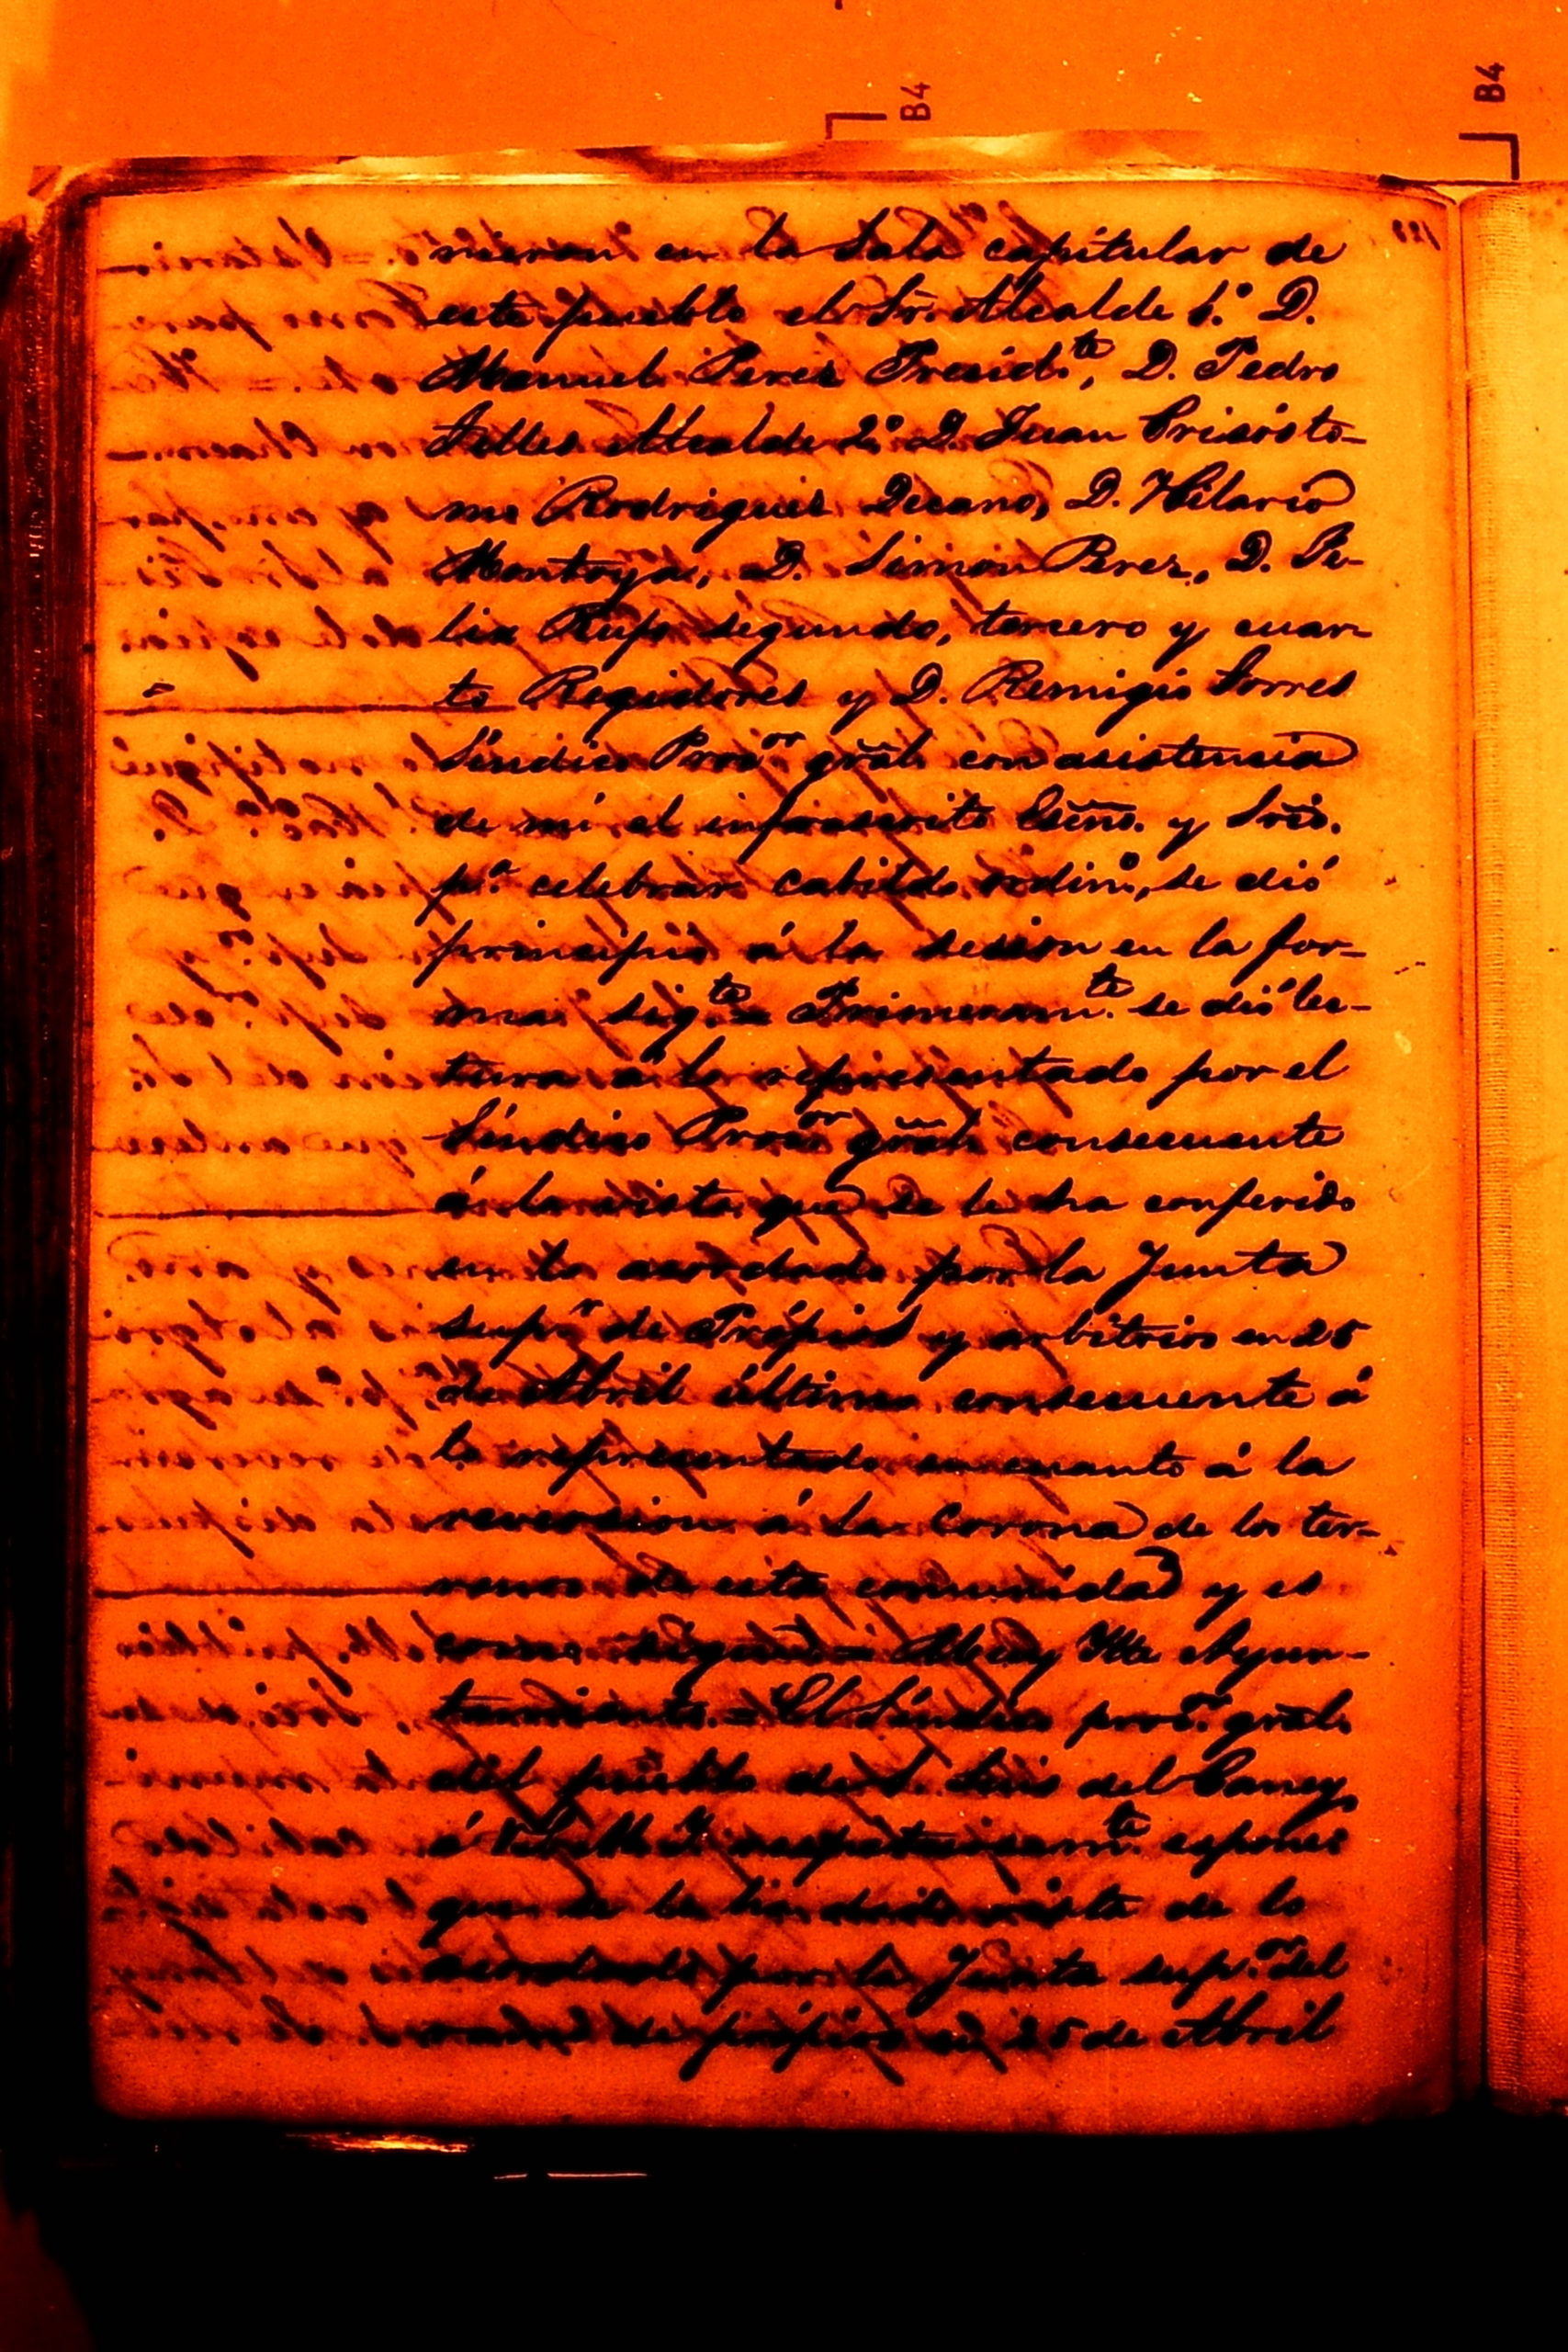 B4
B4
nieron en la Sala capitular de
este pueblo el Sr. Alcalde 1.º D.
Manuel Perez Presid.te, D. Pedro
Telles Alcalde 2.º D. Juan Crisósto-
mo Rodriguez Decano, D. Hilario
Montoya, D. Simon Perez, D. Fe-
lix Rufo segundo, tercero y cuar-
to Regidores y D. Remigio Torres
Síndico Proc.or grãl. con asistencia
de mi el infrascrito Esc̃no. y Srĩo.
p.ª celebrar cabildo ordin.º, se dió
principio á la sesion en la for-
ma sig.te = Primeram.te se dió lec-
tura á lo representado por el
Síndico Proc.or grãl. consecuente
á la vista que se le ha conferido
en lo acordado por la Junta
sup.r de Própios y arbitrios en 25
de Abril último consecuente á
lo representado en cuanto á la
reversion á la Corona de los ter-
renos de esta comunidad y es
como sigue = Muy Ilte Ayun-
tamiento. = El Síndico proc.r grãl.
del pueblo de S. Luis del Caney
á V. respetuosam.te espone:
que se le ha dado vista de lo
acordado por la Junta sup.or del
ramo de própios en 25 de Abril